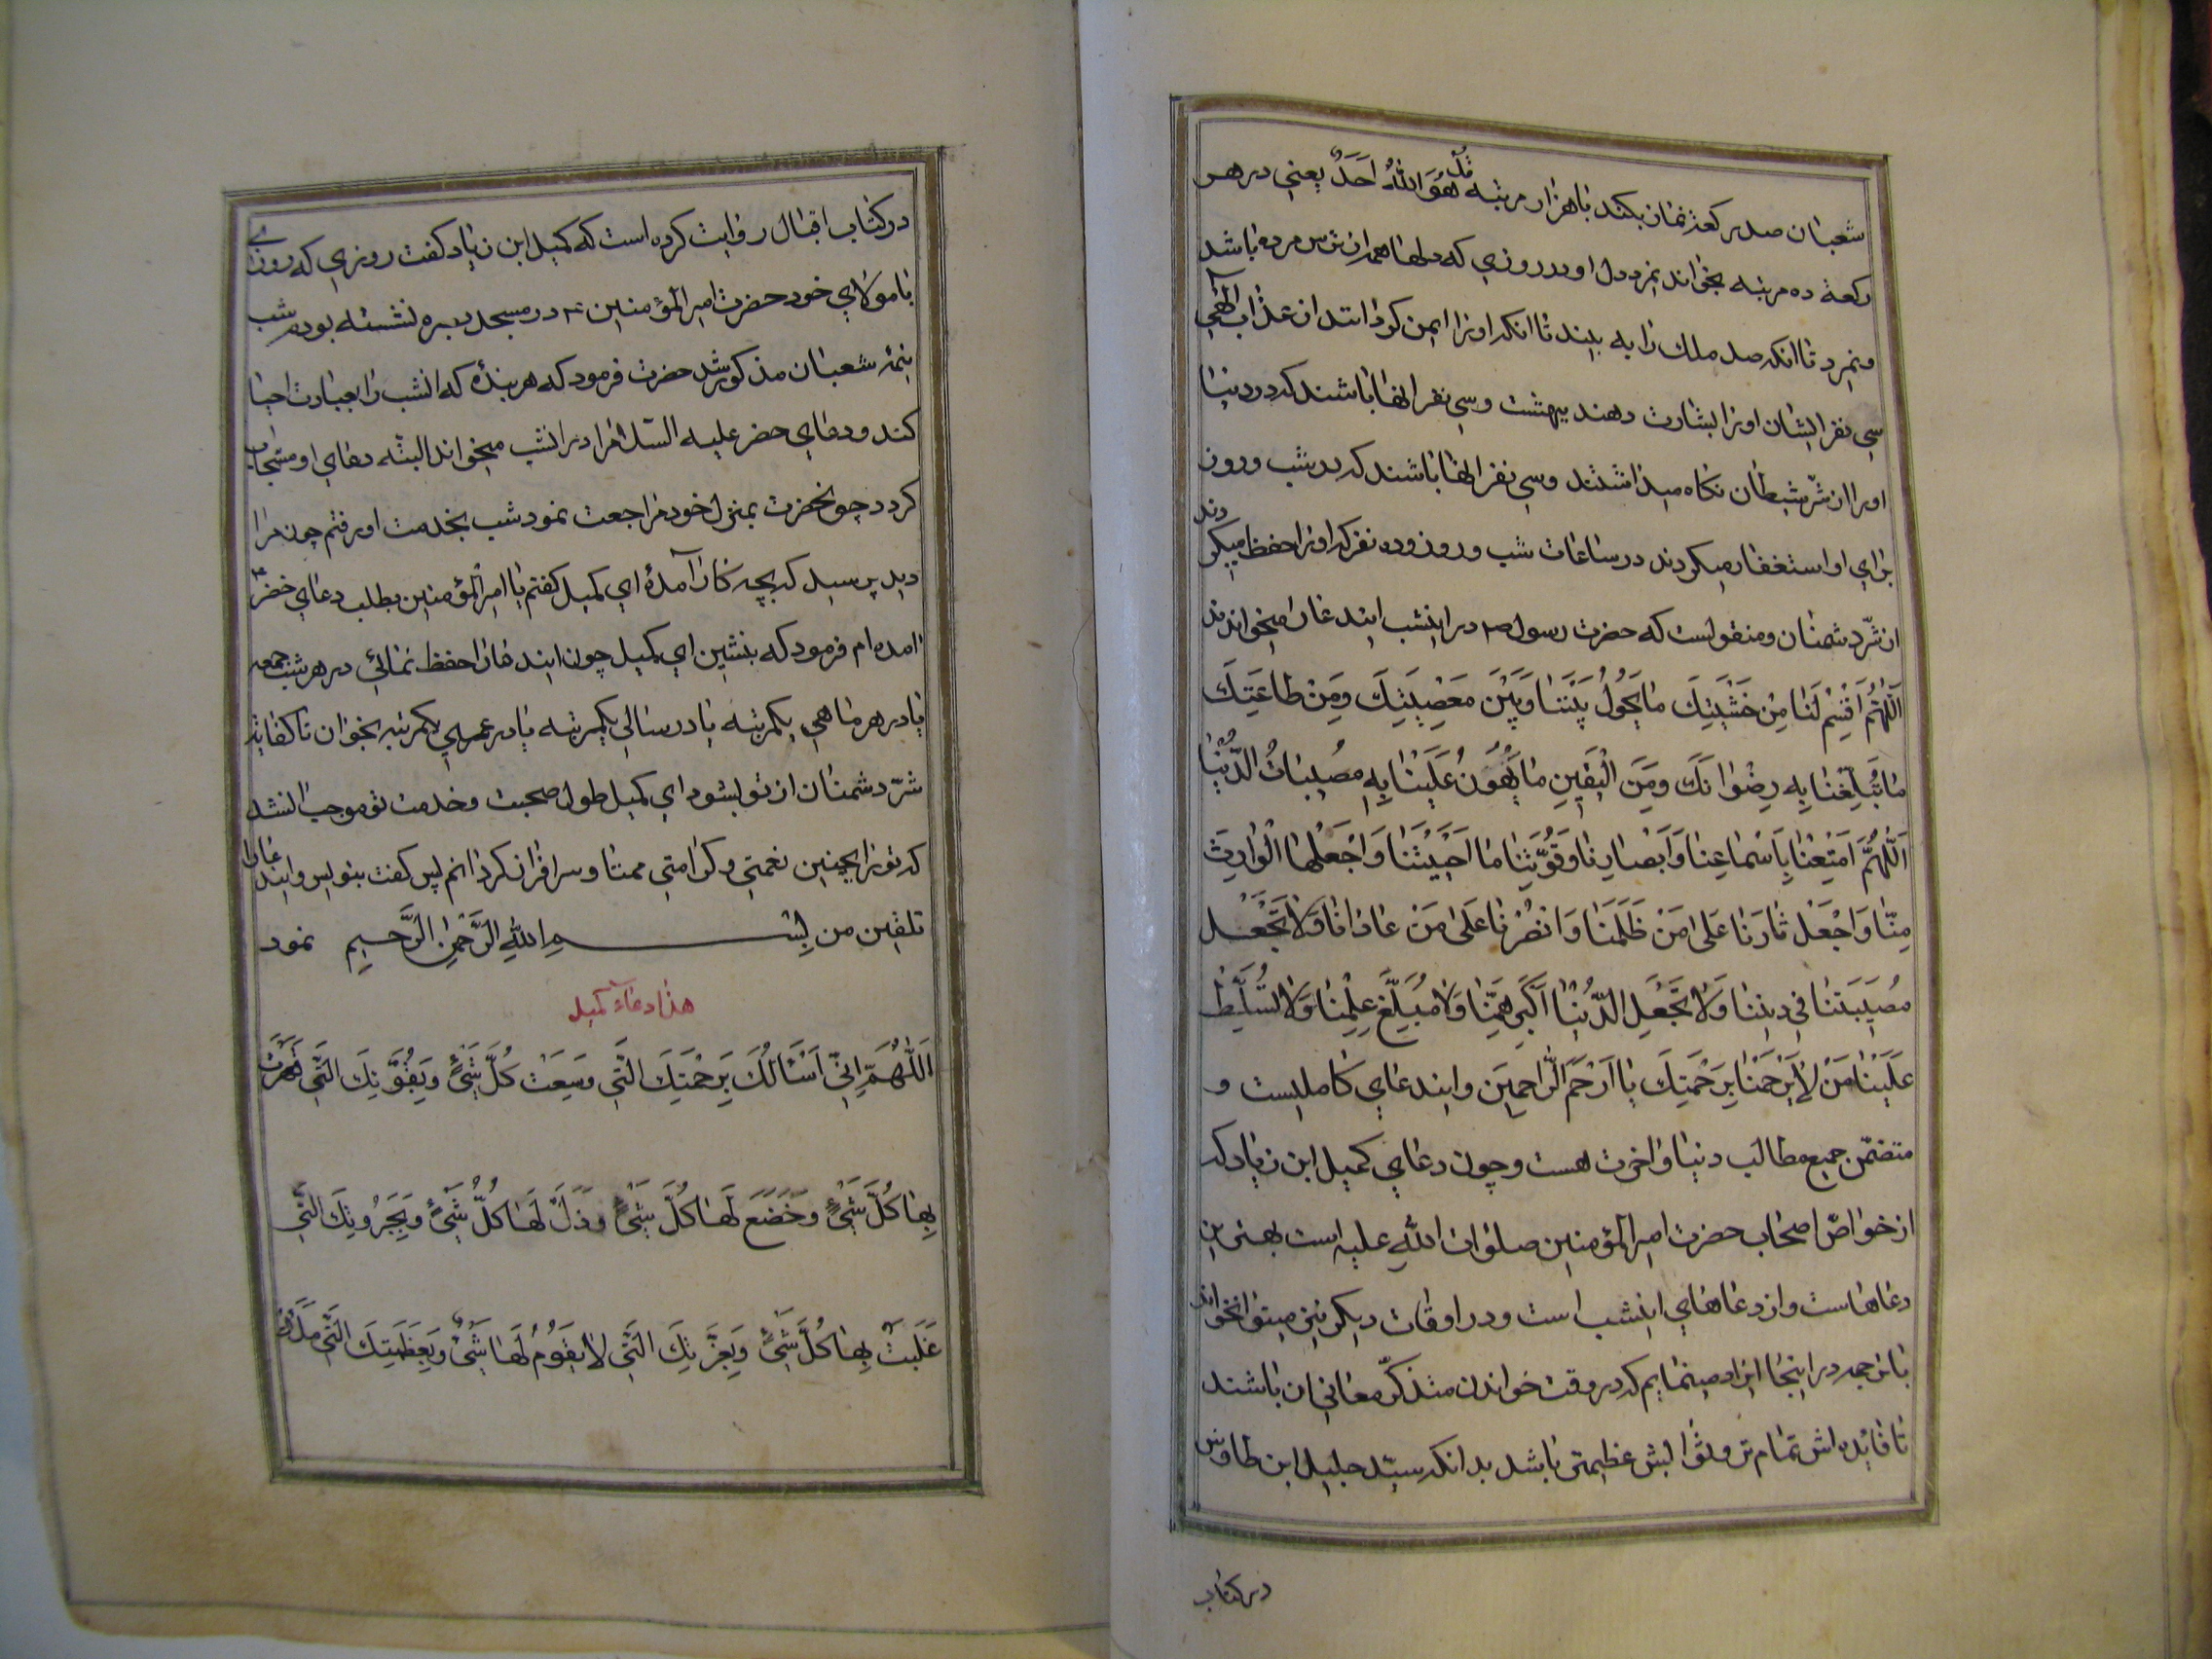 شعبان صد رکعة نماز بکند با هزار مرتبه قُلْ هُوَ اللّٰهُ اَحَدٌ یعنی در هر
رکعة ده مرتبه بخواند نمیرد دل او در روزی که دلها همه از ترس مرده باشد
و نمیرد تا انکه صد ملک را به بیند تا انکه او را ایمن کردانند از عذاب الهی
سی نفر ایشان او را بشارت دهند ببهشت و سی نفر انها باشند که در دنیا
او را از شرّ شیطان نکاه میداشتند و سی نفر انها باشند که در شب و روز
برای او استغفار میکردند در ساعات شب و روز و ده نفر که او را حفظ میکردند
از شرّ دشمنان و منقولست که حضرت رسول ص در اینشب ایندعا را میخواندند
اَللّٰهُمَّ اَقْسِمْ لَنٰا مِنْ خَشْیَتِكَ مٰا یَحُولُ بَیْنَنٰا وَبَیْنَ مَعْصِیَتِكَ وَمِنْ طٰاعَتِكَ
مٰا تُبَلِّغُنٰا بِهِ رِضْوٰانَكَ وَمِنَ الْیَقٖینِ مٰا یَهُونُ عَلَیْنٰا بِهِ مُصٖیبٰاتُ الدُّنْیٰا
اَللّٰهُمَّ اَمْتِعْنٰا بِاَسْمٰاعِنٰا وَاَبْصٰارِنٰا وَقُوَّتِنٰا مٰا اَحْیَیْتَنٰا وَاجْعَلْهٰا الْوٰارِثَ
مِنّٰا وَاجْعَلْ ثٰارَنٰا عَلیٰ مَنْ ظَلَمَنٰا وَانْصُرْنٰا عَلیٰ مَنْ عٰادٰانٰا وَلٰا تَجْعَلْ
مُصٖیبَتَنٰا فٖی دٖینِنٰا وَلٰا تَجْعَلِ الدُّنْیٰا اَکْبَرَ هَمِّنٰا وَلٰا مَبْلَغَ عِلْمِنٰا وَلٰا تُسَلِّطْ
عَلَیْنٰا مَنْ لٰا یَرْحَمُنٰا بِرَحْمَتِكَ یٰا اَرْحَمَ الرّٰاحِمٖینَ و ایندعای کاملیست و
متضمّن جمیع مطالب دنیا و اخرت هست و چون دعای کمیل ابن زیاد که
از خواصّ اصحاب حضرت امیر المؤمنین صلوات اللّٰه علیه است بهترین
دعاهاست و از دعاهای اینشب است و در اوقات دیکر نیز میتوان خواند
با ترجمه در اینجا ایراد مینمایم که در وقت خواندن متذکّر معانی ان باشند
تا فایده اش تمام تر و ثوابش عظیمتر باشد بدانکه سیّد جلیل ابن طاوس
در کتاب
در کتاب اقبال روایت کرده است که کمیل ابن زیاد کفت روزی که روزی
با مولای خود حضرت امیر المؤمنین ع در مسجد بصره نشسته بودم شب
نیمهٔ شعبان مذکور شد حضرت فرمود که هر بندهٔ که انشب را بعبادت احیا
کند و دعای خضر علیه السّلام را در انشب میخواند البتّه دعای او مستجاب
کردد چون حضرت بمنزل خود مراجعت نمود شب بخدمت او رفتم چون مرا
دید پرسید که بچه کار آمدهٔ ای کمیل کفتم یا امیر المؤمنین بطلب دعای خضر ع
امده ام فرمود که بنشین ای کمیل چون ایندعا را حفظ نمائی در هر شب جمعه
یا در هر ماهی یکمرتبه یا در سالی یکمرتبه یا در عمری یکمرتبه بخوان تا کفایت
شرّ دشمنان از تو بشود ای کمیل طول صحبت و خدمت تو موجب انشد
که تو را بچنین نعمتی و کرامتی ممتاز و سرافراز کردانم پس کفت بنویس و ایندعا را
تلقین من بِسْمِ اللّٰهِ الرَّحْمٰنِ الرَّحٖیمِ نمود
هذا دعاء کمیل
اَللّٰهُمَّ اِنّٖی اَسْئَالُكَ بِرَحْمَتِكَ الَّتٖی وَسِعَتْ کُلَّ شَیْءٍ وَبِقُوَّتِكَ الَّتٖی قَهَرْتَ
بِهٰا کُلَّ شَیْءٍ وَخَضَعَ لَهٰا کُلُّ شَیْءٍ وَذَلَّ لَهٰا کُلُّ شَیْءٍ وَبِجَبَرُوتِكَ الَّتٖی
غَلَبْتَ بِهٰا کُلَّ شَیْءٍ وَبِعِزَّتِكَ الَّتٖی لٰا یَقُومُ لَهٰا شَیْءٌ وَبِعَظَمَتِكَ الَّتٖی مَلَأَتْ